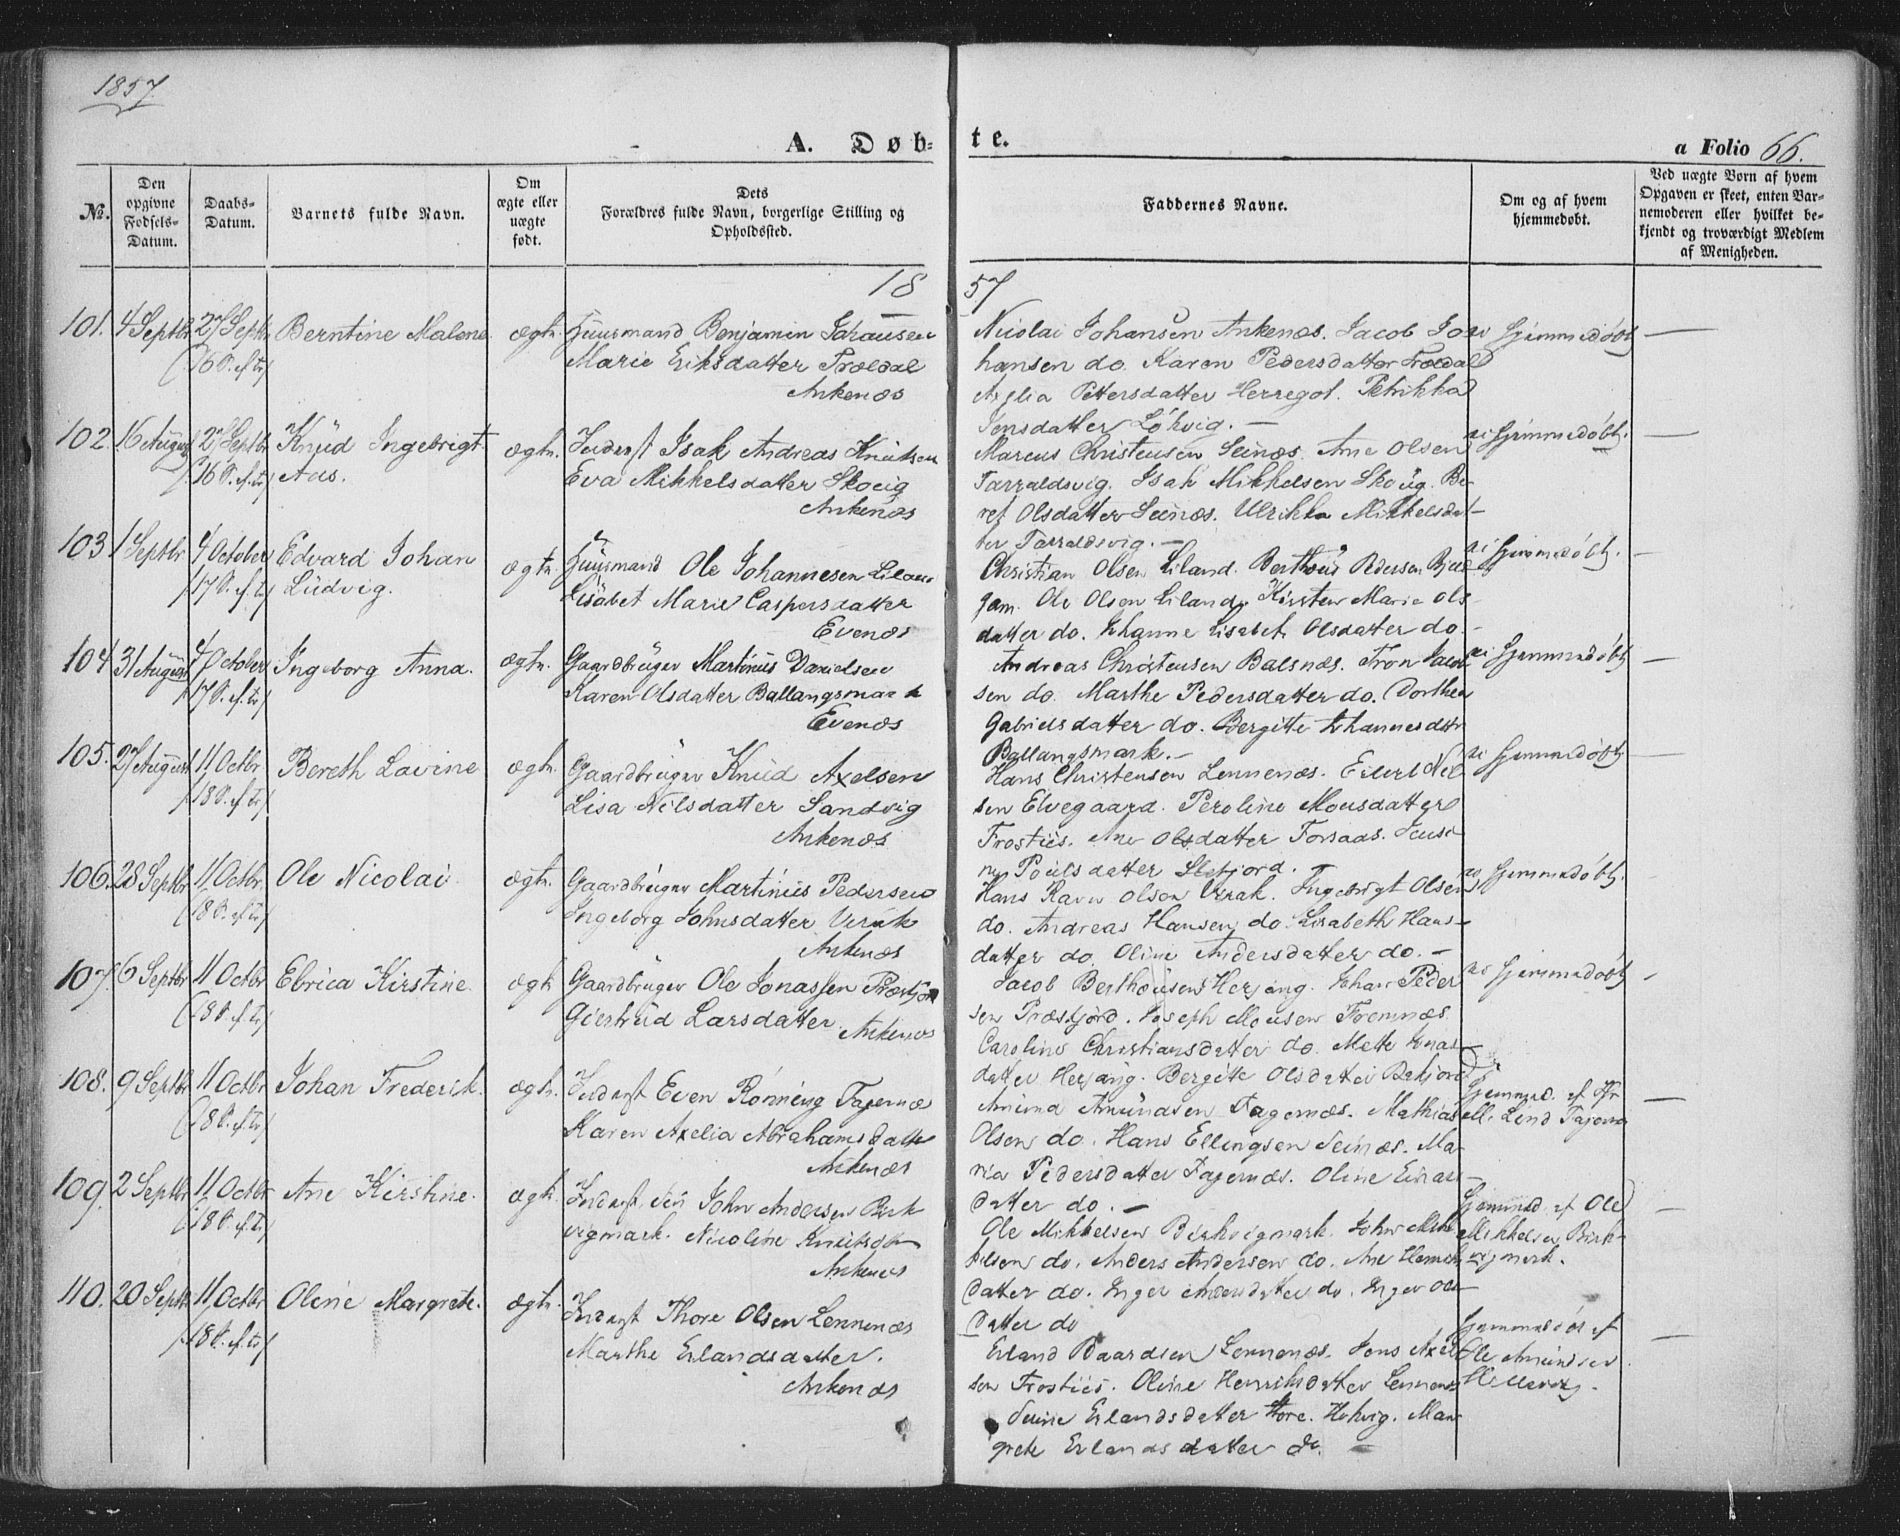 1857
A. Døb-
te.
a Folio 66.
No.
Den opgivne Fødsels-Datum.
Daabs-Datum.
Barnets fulde Navn.
Om ægte eller uægte født.
Dets Forældres fulde Navn, borgerlige Stilling og Opholdssted.
Faddernes Navne.
Om og af hvem hjemmedøbt.
Ved uægte Born af hvem Opgaven er skeet, enten Barnemoderen eller hvilket bekjendt og troværdigt Medlem af Menigheden.
18
57
101. 4 Septbr 27 Septbr Berntine Malene ægte. Huusmand Benjamin Johansen
16 S. ef. tr Marie Eriksdatter Trældal
Ankenæs
Nicolai Johansen Ankenæs. Jacob Jo-
hansen do. Karen Pedersdatter Trældal
Axelia Pettersdatter Herregot. Petrikka
Jensdatter Løkvig.
ei hjemmedøbt
102. 16 August 27 Septbr Knud Ingebrigt ægte. Inderst Isak Andreas Knutsen
16 S. ef. tr Aas. Eva Mikkelsdatter Skovig
Ankenæs
Marcus Christensen Seinæs. Ane Olsen
Tarraldsvig. Isak Mikkelsen Skoüg. Be-
ret Olsdatter Seinæs. Ulrikka Mikkelsdat-
ter Tarraldsvig.
ei hjemmedøbt.
103 1 Septbr 4 October Edvard Johan ægte. Huusmand Ole Johannesen Liland
17 S. ef. tr Ludvig. Lisabet Marie Caspersdatter
Evenæs
Christian Olsen Liland. Berthous Pedersen
Ole Olsen Liland. Kirsten Marie Ols-
datter do. Johanne Lisabet Olsdatter do.
ei hjemmedøbt.
104 31 August 4 October Ingeborg Anna. ægte. Gaardbruger Martinus Danielsen
17 S. ef. tr Karen Olsdatter Ballangsmark
Evenæs
Andreas Christensen Balsnæs. Tron
sen do. Marthe Pedersdatter do. Dorthea
Gabrielsdatter do. Bergitte Johannesdtr
Ballangsmark.
ei hjemmedøbt
105. 27 August 11 Octbr Bereth Lovine ægte. Gaardbruger Knud Axelsen
18 S. ef. tr Lisa Nilsdatter Sandvig
Ankenæs
Hans Christensen Lennenæs. Eilert Nil-
sen Elvegaard. Peroline Mousdatter
Frostiis. Ane Olsdatter Forsaas.
Poulsdatter
ei hjemmedøbt
106. 28 Septbr 11 Octbr. Ole Nicolai ægte. Gaardbruger Martinus Pedersen
18 S. ef. tr Ingeborg Johnsdatter Virak
Ankenæs
Hans Olsen Virak. Ingebrigt Olsen
do. Andreas Hansen do. Lisabeth Hans-
datter do. Oline Andersdatter do.
ei hjemmedøbt.
107. 6 Septbr 11 Octbr Elrica Kirstine. ægte Gaardbruger Ole Jonassen Præstjord
18 S. ef. tr Giertrud Larsdatter. Ankenæs
Jacob Berthousen Herjang. Johan Peder
sen Præstjord. Joseph Mousen Fremnæs
Caroline Christiansdatter do. Mette Jonas-
datter Herjang. Bergitte Olsdatter
ei hjemmedøbt
108. 9 Septbr 11 Octbr Johan Frederik. ægte. Inderst Even Rønning Fagernæs
18 S. ef. tr Karen Axelia Abrahamsdatter
Ankenæs
Amund Amundsen Fagernæs. Mathias
Olsen do. Hans Ellingsen Seinæs. Ma-
ria Pedersdatter Fagernæs. Oline Einars-
datter do.
Hjemmed. af
Lind
109. 2 Septbr 11 Octbr Ane Kirstine. ægte. Inderst John Andersen Birk-
18 S. ef. tr vigmark. Nicoline Knutsdtr
Ankenæs
Ole Mikkelsen Birkvigmark. John Mik-
kelsen do. Anders Andersen do. Ane
datter do. Inger Andersdatter do. Inger Ols-
datter do
Hjemmed. af Ole
Mikkelsen Birk-
vigmark.
110. 20 Septbr 11 Octbr Oline Margrete. ægte. Inderst Thore Olsen Lennenæs
18 S. ef. tr Marthe Erlandsdatter.
Ankenæs
Erland Baardsen Lennenæs. Jens Axel-
sen Frostiis. Oline Henriksdatter Lennenæs
Erlandsdatter Mar-
grete Erlandsdatter do.
hjemmedøbt af
Ole Amundsen